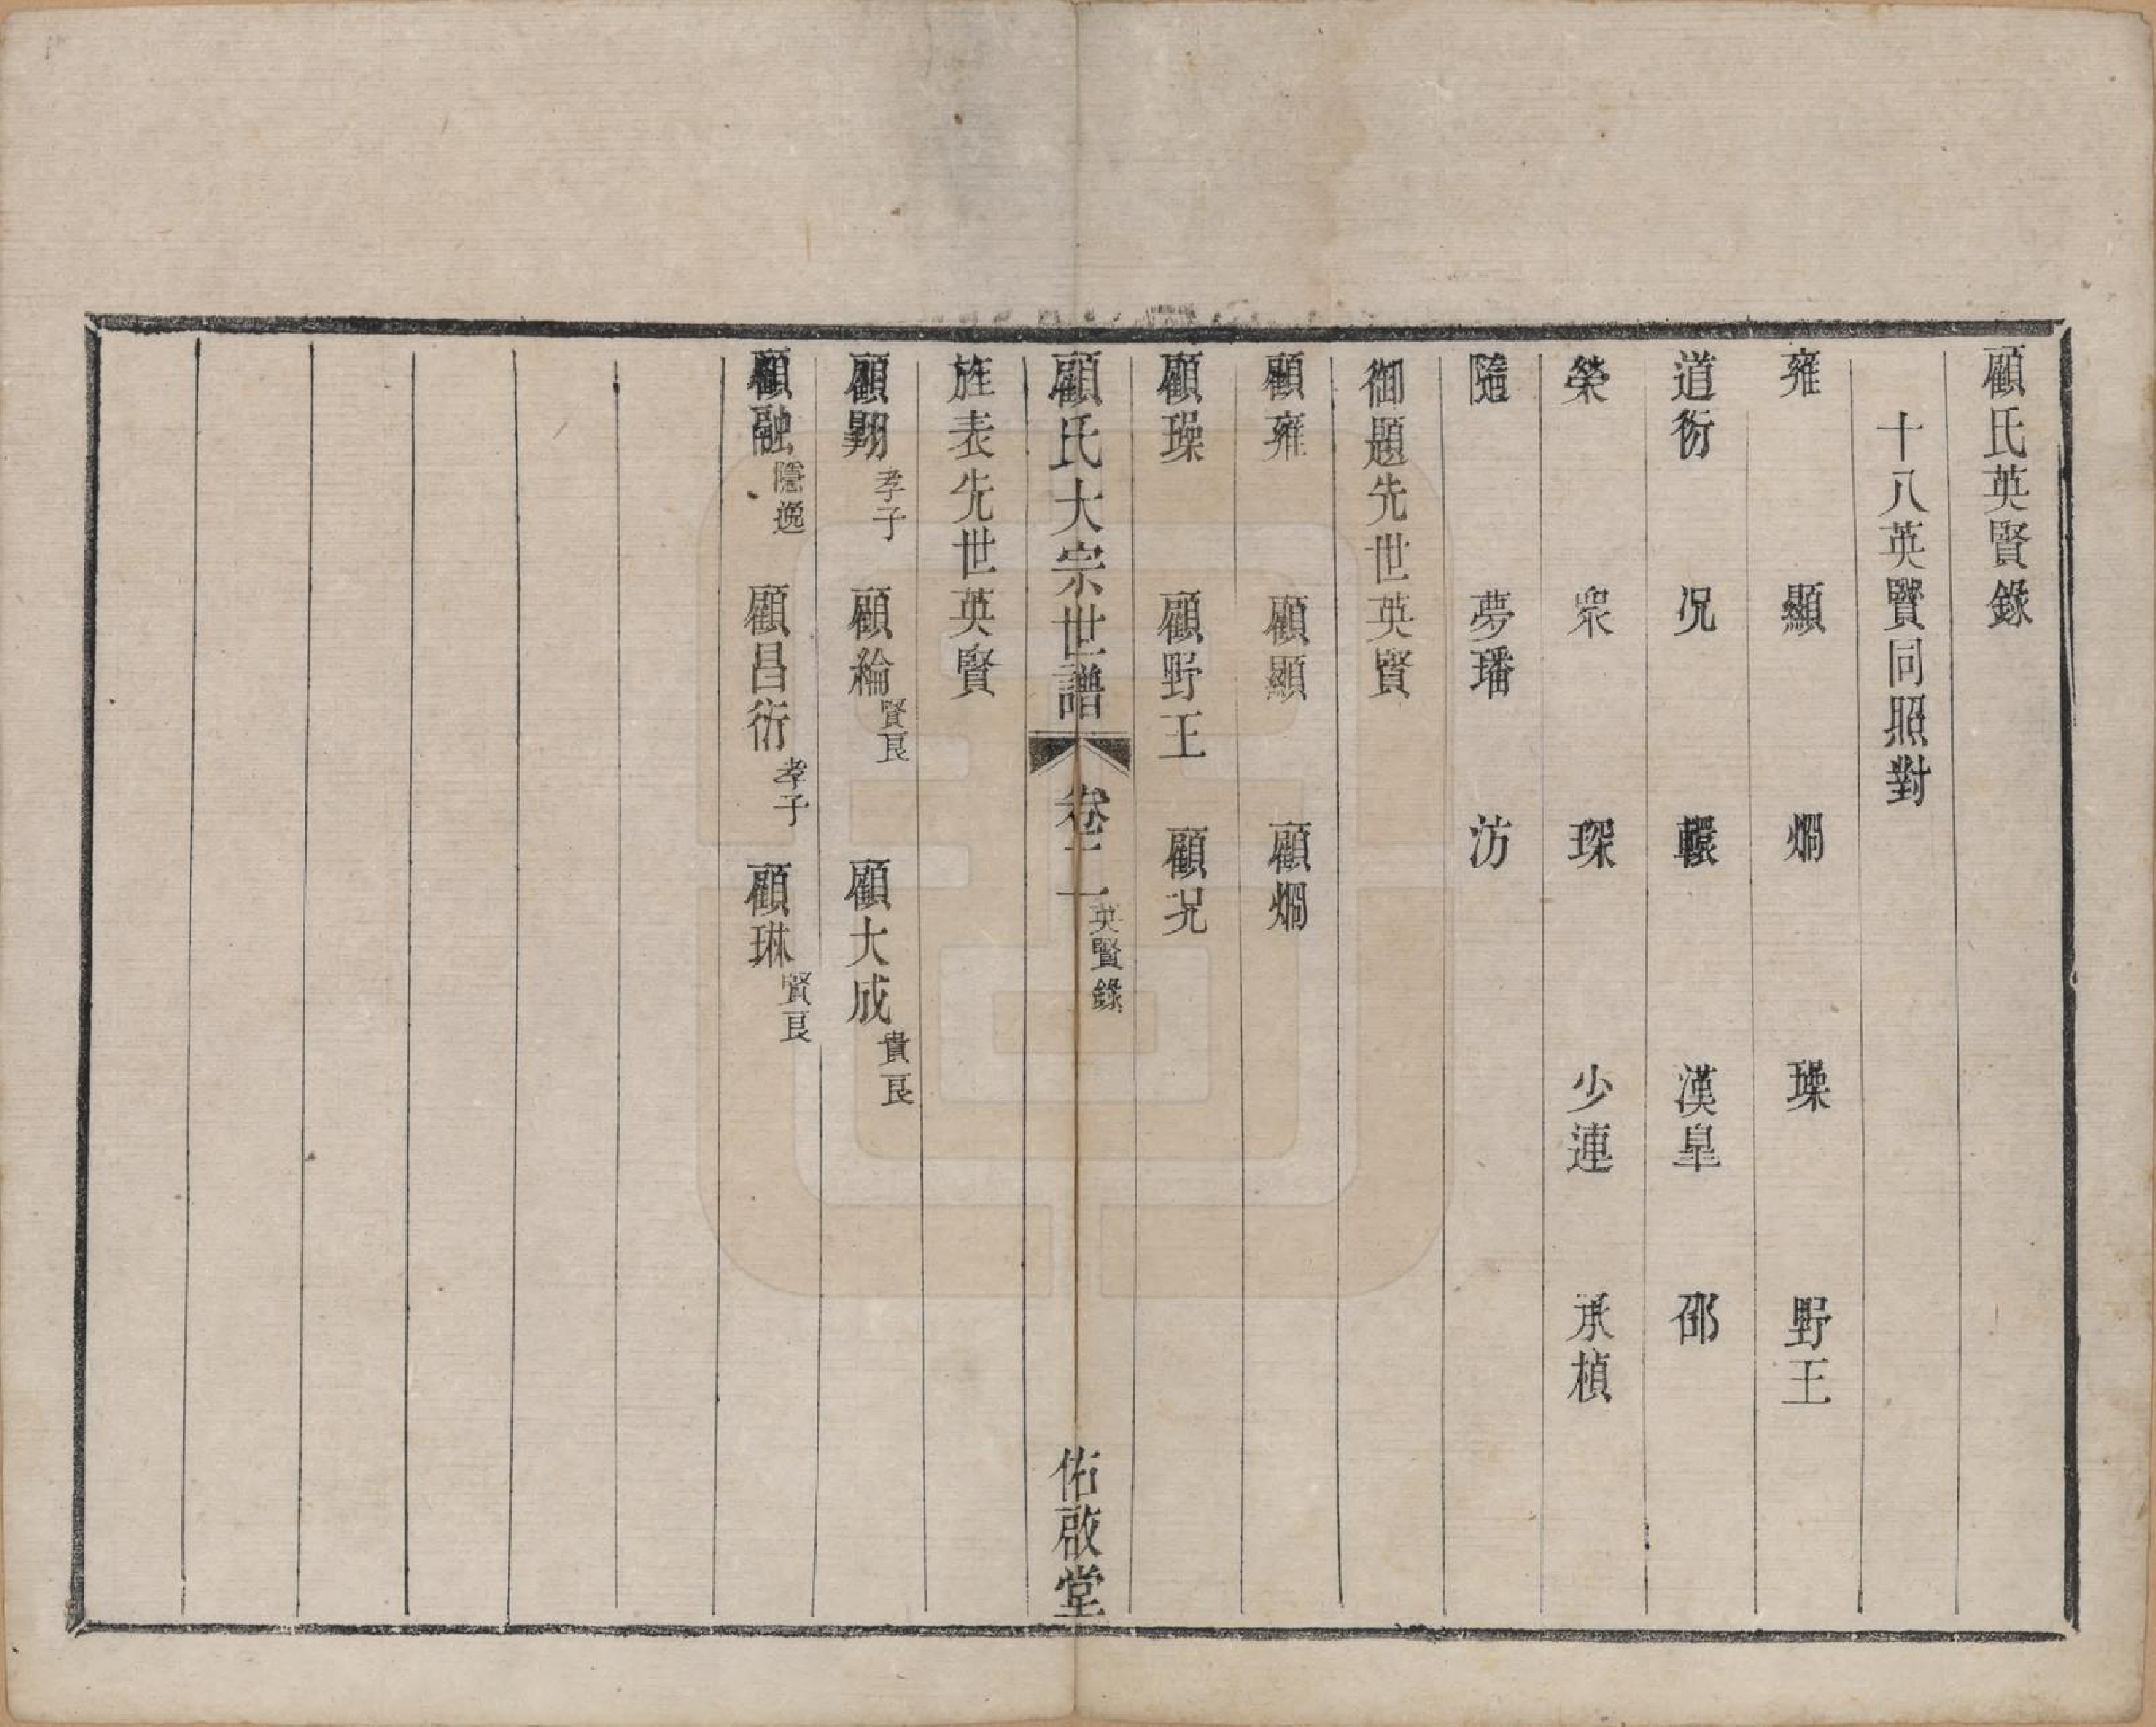 顧氏英賢錄
十八英賢同照對
雍 顯 燗 璪 野王
道衍 況 轘 漢皐 邵
榮 眾 琛 少連 承楨
隨 夢璠 汸
御題先世英賢
顧雍 顧顯 顧燗
顧璪 顧野王 顧況
顧氏大宗世譜 卷二 英賢錄 佑啟堂
旌表先世英賢
顧翾孝子 顧綸賢良 顧大成貴良
顧融隱逸 顧昌衍孝子 顧琳賢良